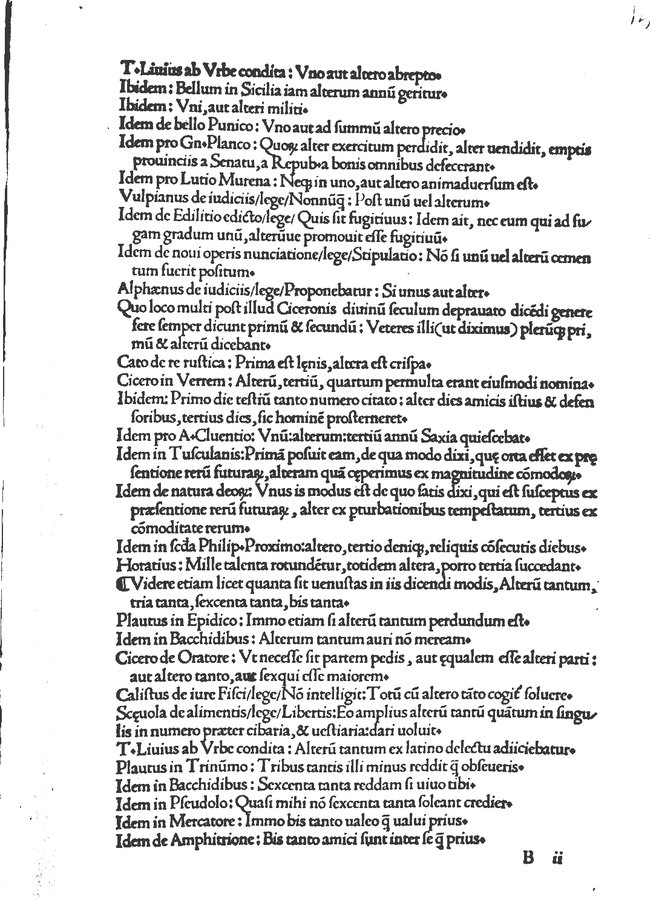 T.Liuius ab Vrbe condita: Vno aut altero abrepto.
Ibidem: Bellum in Sicilia iam alterum annū geritur.
Ibidem: Vni, aut alteri militi.
Idem de bello Punico: Vno aut ad summū altero precio.
Idem pro Gn.Planco: Quoꝝ alter exercitum perdidit, alter uendidit, emptis
prouinciis a Senatu, a Repub.a bonis omnibus defecerant.
Idem pro Lutio Murena: Neqꝫ in uno, aut altero animaduersum est.
Vulpianus de iudiciis/lege/Nonnūq̄: Post unū uel alterum.
Idem de Edilitio edicto/lege/ Quis sit fugitiuus: Idem ait, nec eum qui ad fu-
gam gradum unū, alterūue promouit esse fugitiuū.
Idem de noui operis nunciatione/lege/Stipulatio: Nō si unū uel alterū cemen
tum fuerit positum.
Alphænus de iudiciis/lege/Proponebatur: Si unus aut alter.
Quo loco multi post illud Ciceronis diuinū seculum deprauato dicēdi genere
fere semper dicunt primū & secundū: Veteres illi(ut diximus)plerūqꝫ pri,
mū & alterū dicebant.
Cato de re rustica: Prima est lęnis, altera est crispa.
Cicero in Verrem: Alterū, tertiū, quartum permulta erant eiusmodi nomina.
Ibidem: Primo die testiū tanto numero citato: alter dies amicis istius & defen
soribus, tertius dies, sic hominē prosterneret.
Idem pro A.Cluentio: Vnū:alterum:tertiū annū Saxia quiescebat.
Idem in Tusculanis: Primā posuit eam, de qua modo dixi, quę orta esset ex prę
sentione rerū futuraꝝ, alteram quā cęperimus ex magnitudine cōmodoꝝ.
Idem de natura deoꝝ: Vnus is modus est de quo satis dixi, qui est susceptus ex
præsentione rerū futuraꝝ, alter ex ꝑturbationibus tempestatum, tertius ex
cōmoditate rerum.
Idem in scđa Philip.Proximo:altero, tertio deniqꝫ, reliquis cōsecutis diebus.
Horatius: Mille talenta rotundētur, totidem altera, porro tertia succedant.
¶Videre etiam licet quanta sit uenustas in iis dicendi modis, Alterū tantum,
tria tanta, sexcenta tanta, bis tanta.
Plautus in Epidico: Immo etiam si alterū tantum perdundum est.
Idem in Bacchidibus: Alterum tantum auri nō meream.
Cicero de Oratore: Vt necesse sit partem pedis, aut ęqualem esse alteri parti:
aut altero tanto, aut sexqui esse maiorem.
Calistus de iure Fisci/lege/Nō intelligit:Totū cū altero tāto cogit̄ soluere.
Scęuola de alimentis/lege/Libertis:Eo amplius alterū tantū quātum in singu-
lis in numero præter cibaria, & uestiaria:dari uoluit.
T.Liuius ab Vrbe condita: Alterū tantum ex latino delectu adiiciebatur.
Plautus in Trinūmo: Tribus tantis illi minus reddit q̄ obseueris.
Idem in Bacchidibus: Sexcenta tanta reddam si uiuo tibi.
Idem in Pseudolo: Quasi mihi nō sexcenta tanta soleant credier.
Idem in Mercatore: Immo bis tanto ualeo q̄ ualui prius.
Idem de Amphitrione: Bis tanto amici sunt inter se q̄ prius.
B ii